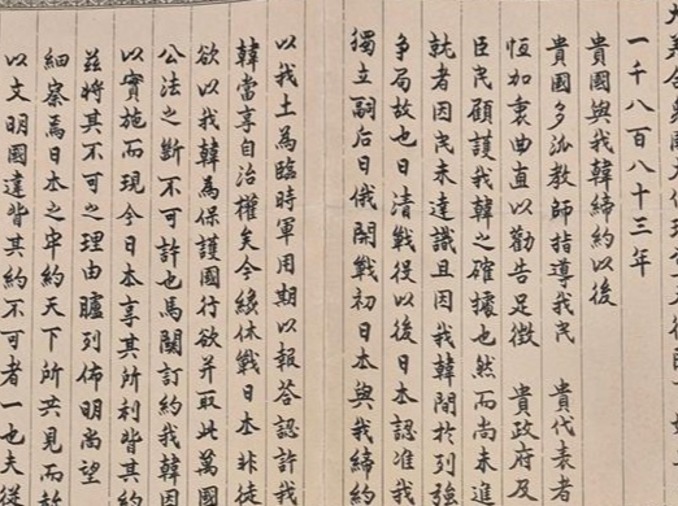 一千八百八十三年
貴國與我韓締約以後
貴國多派教師指導我民 貴代表者
恒加衷曲直以勸告足徵 貴政府及
臣民顧護我韓之確據也然而尚未進
就者因民未達識且因我韓間於列強
爭局故也日清戰役以後日本認准我
獨立嗣后日俄開戰初日本與我締約
以我土為臨時軍用期以報答認許我
韓當享自治權矣今緣休戰日本非徒
欲以我韓為保護國行欲并取此萬國
公法之斷不可許也馬關訂約我韓因
以實施而現今日本享其所利背其約
茲將其不可之理由臚列佈明尚望
細察焉日本之牢約天下所共見而
以文明國違背其約不可者一也夫從